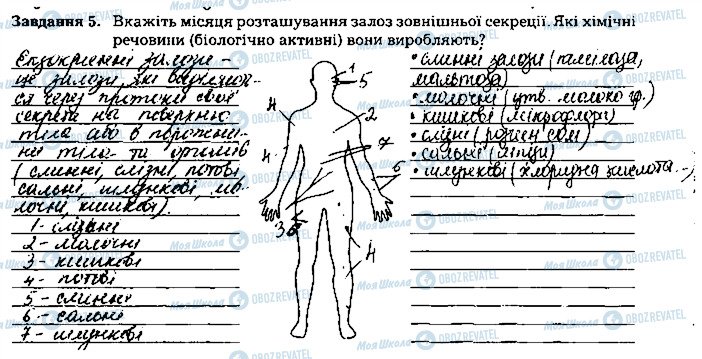 Завдання 5. Вкажіть місяця розташування залоз зовнішньої секреції. Які хімічні
речовини (біологічно активні) вони виробляють?
Екзокринні залози –
це залози, які
ся через протоки свої
секрети на поверхню
тіла або в порожни-
ни тіла та органів
(слинні, слізні, потові
сальні, шлункові, мо-
лочні, кишкові).
1 - слізні
2 - молочні
3 - кишкові
4 - потові
5 - слинні
6 - сальні
7 - шлункові
1
5
4
2
7
4
6
3
6
4
• слинні залози (амілаза,
мальтоза)
• молочні (утв. молоко гр.)
• кишкові (мікрофлори)
• слізні (розчин солі)
• сальні (ліпіди)
• шлункові (хлоридна кислота
Моя Школа
OBOZREVATEL